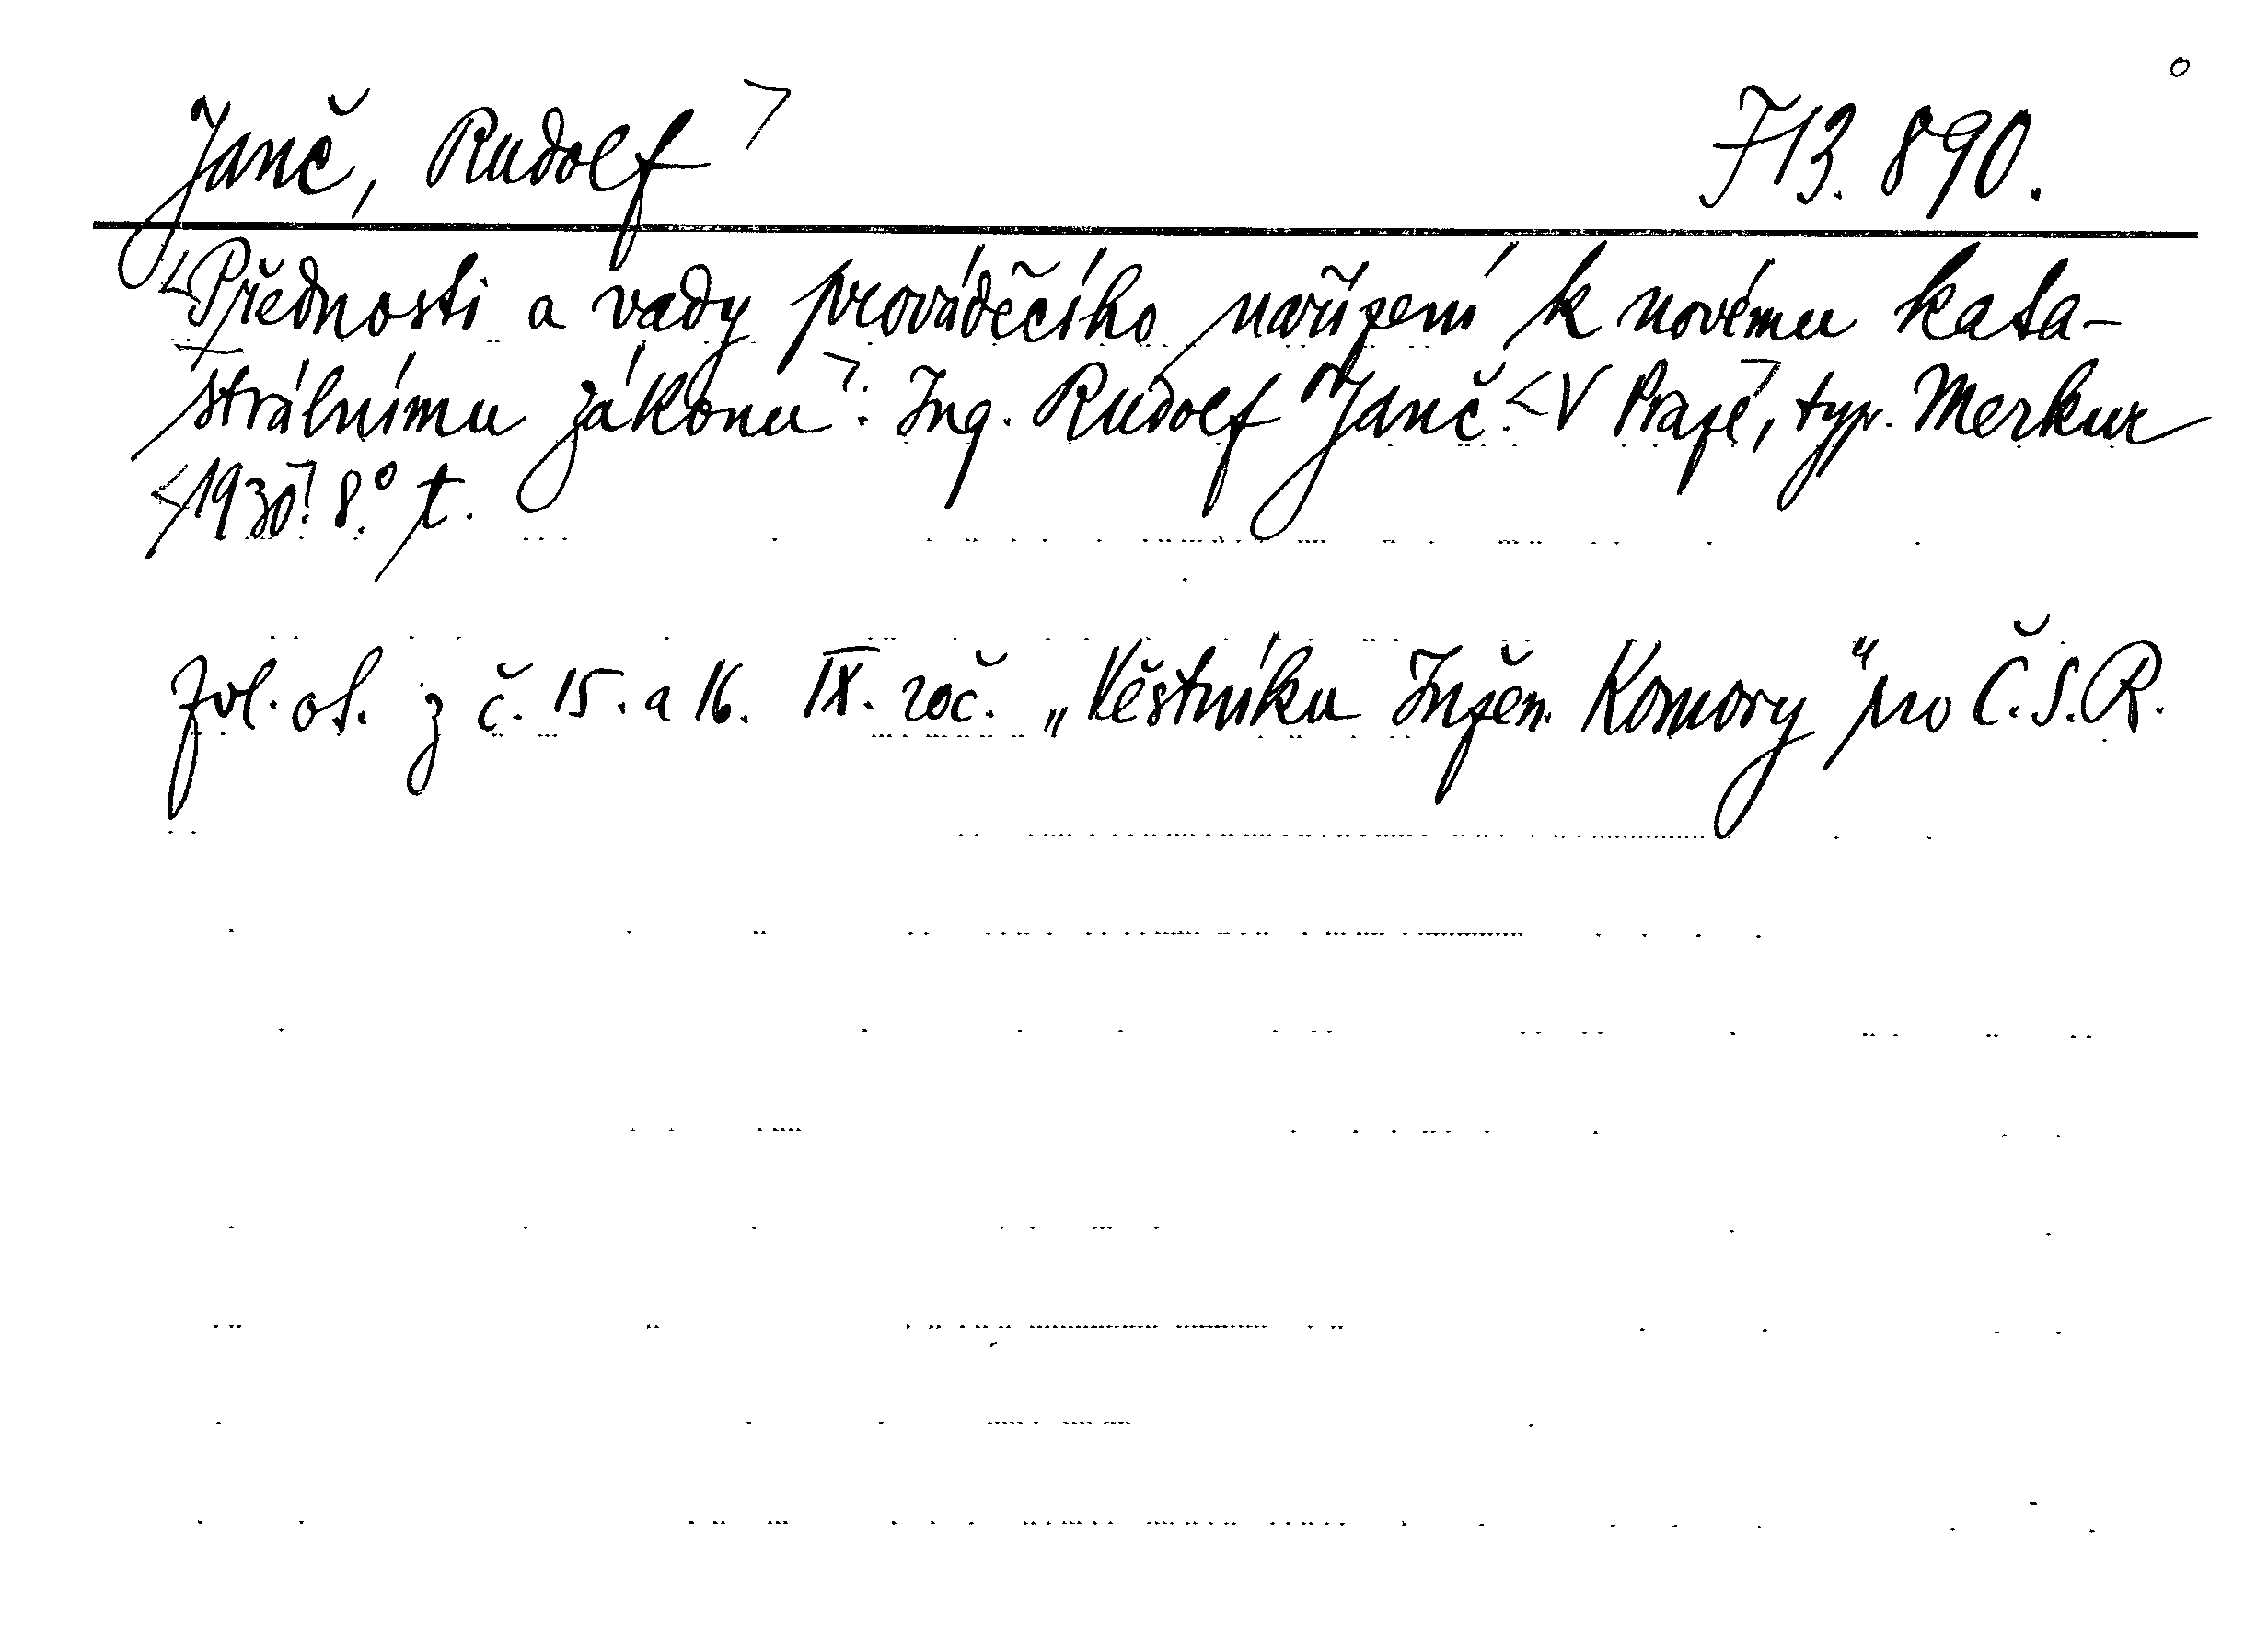 Janč, Rudolf
713.890.
Přednosti a vady prováděcího nařízení k novému kata-
strálnímu zákonu. Ing. Rudolf Janč. V Praze, typ. Merkur
1930. 8.° t.
Zvl. ot. z č. 15. a 16. IX. roč. „Věstníku Inžen. Komory" pro Č.S.R.